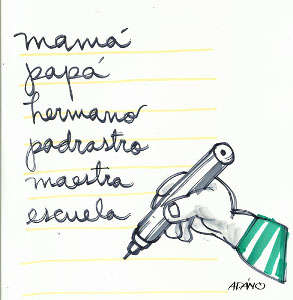 mamá
papá
hermano
padrastro
maestra
escuela
ADÁNO